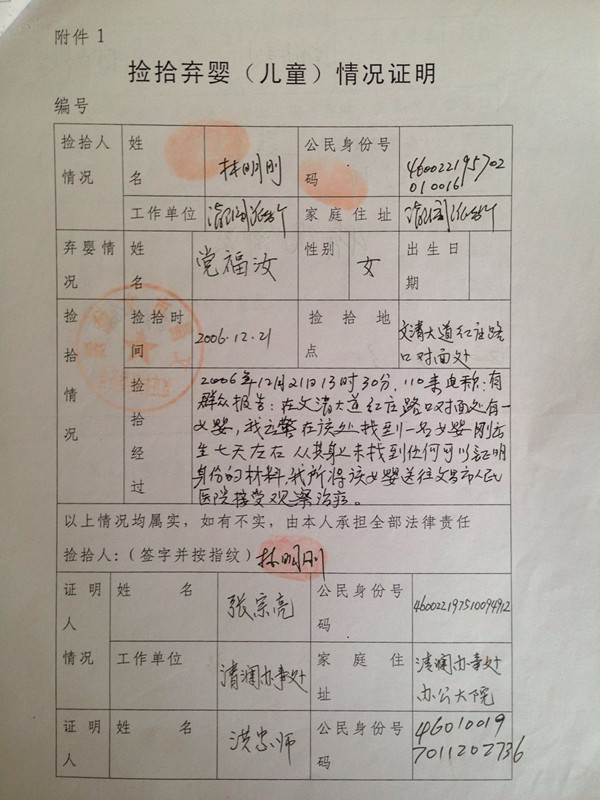 附件 1
捡拾弃婴（儿童）情况证明
编号
捡拾人情况 姓名 林明刚 公民身份号码 460022195702010016
工作单位 清澜派出所 家庭住址 清澜派出所
弃婴情况 姓名 党福汝 性别 女 出生日期
捡拾情况 捡拾时间 2006.12.21 捡拾地点 文清大道红庄路口对面处
捡拾经过
2006年12月21日13时30分，110来电称：有
群众报告：在文清大道红庄路口对面处有一
女婴，我出警在该处找到一名女婴刚出
生七天左右 从其身上未找到任何可以证明
身份的材料，我所将该女婴送往文昌市人民
医院接受观察治疗。
以上情况均属实，如有不实，由本人承担全部法律责任
捡拾人：（签字并按指纹）林明刚
证明人情况 姓名 张宗亮 公民身份号码 460022197510094912
工作单位 清澜办事处 家庭住址 清澜办事处办公大院
证明人 姓名 洪忠师 公民身份号码 460100197011202736